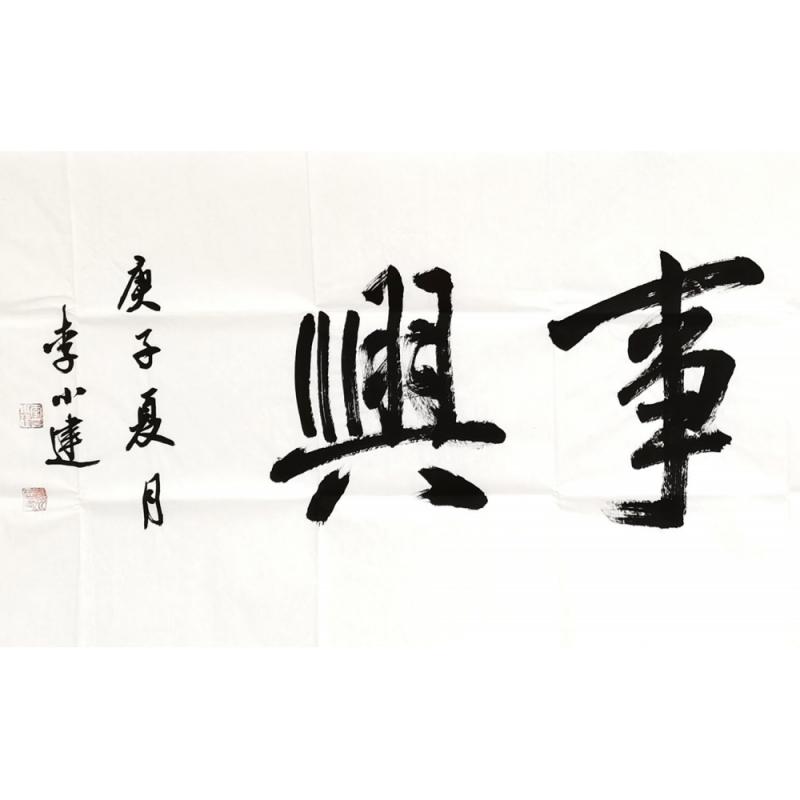 事興
庚子夏月
李小建